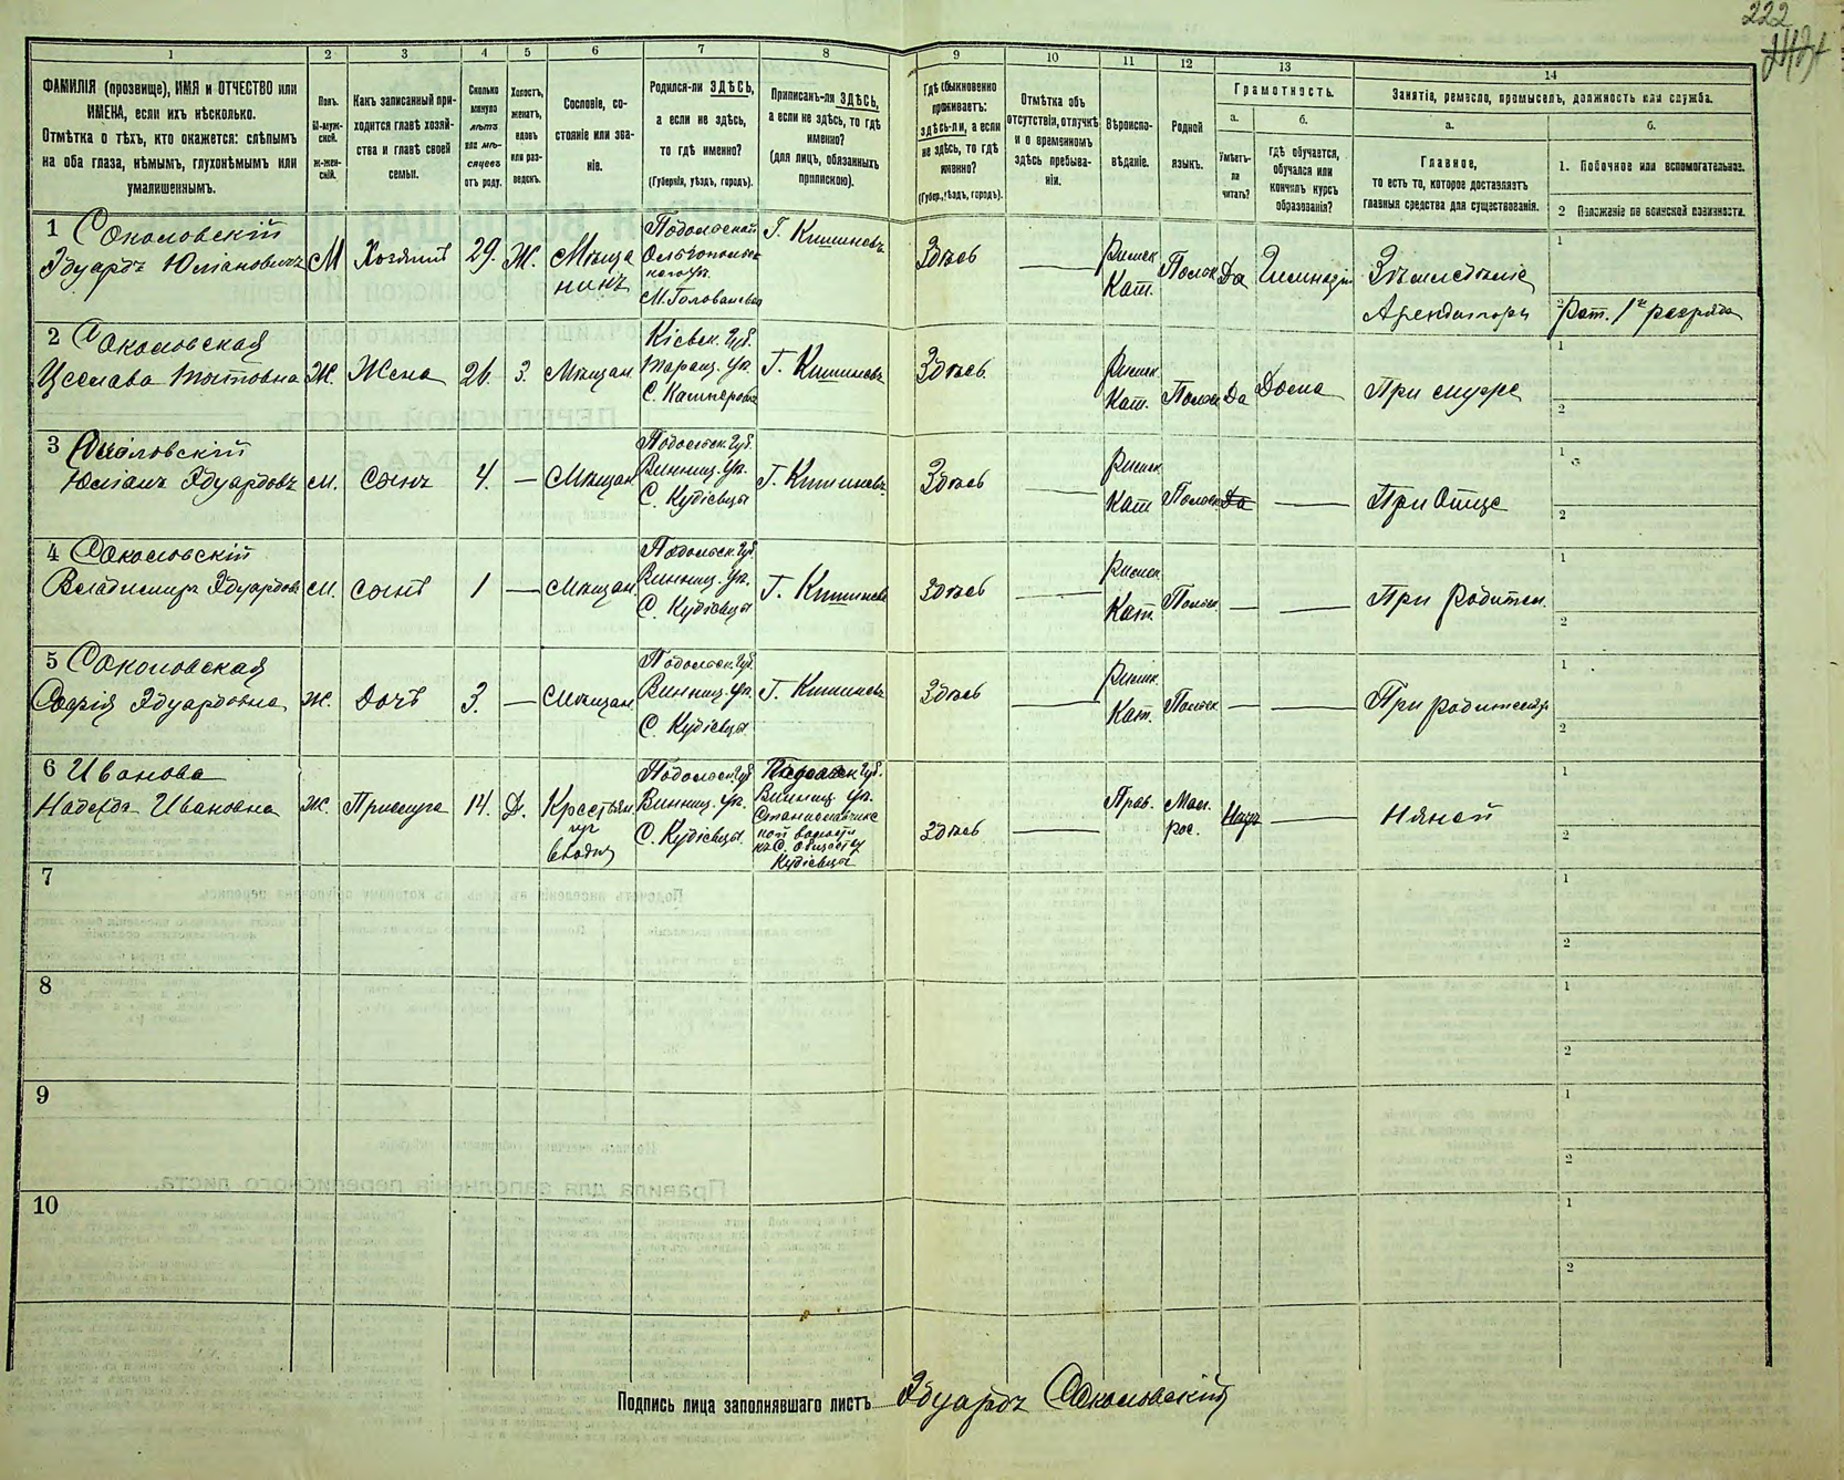 222
1
2
3
4
5
6
7
8
9
10
11
12
13
14
ФАМИЛІЯ (прозвище), ИМЯ и ОТЧЕСТВО или
ИМЕНА, если ихъ нѣсколько.
Отмѣтка о тѣхъ, кто окажется: слѣпымъ
на оба глаза, нѣмымъ, глухонѣмымъ или
умалишеннымъ.
Полъ.
М-муж-
ской.
Ж-жен-
скій.
Какъ записанный при-
ходится главѣ хозяй-
ства и главѣ своей
семьи.
Сколько
минуло
лѣтъ
или мѣ-
сяцевъ
отъ роду.
Холостъ,
женатъ,
вдовъ
или раз-
веденъ.
Сословіе, со-
стояніе или зва-
ніе.
Родился-ли ЗДѢСЬ,
а если не здѣсь,
то гдѣ именно?
(Губернія, уѣздъ, городъ).
Приписанъ-ли ЗДѢСЬ,
а если не здѣсь, то гдѣ
именно?
(для лицъ, обязанныхъ
припискою).
Гдѣ обыкновенно
проживаетъ:
здѣсь-ли, а если
не здѣсь, то гдѣ
именно?
(Губер., уѣздъ, городъ).
Отмѣтка объ
отсутствіи, отлучкѣ
и о временномъ
здѣсь пребыва-
ніи.
Вѣроиспо-
вѣданіе.
Родной
языкъ.
Грамотность.
а.
б.
Умѣетъ-
ли
читать?
Гдѣ обучается,
обучался или
кончилъ курсъ
образованія?
Занятія, ремесло, промыселъ, должность или служба.
а.
б.
Главное,
то есть то, которое доставляетъ
главныя средства для существованія.
1. Побочное или вспомогательное.
2 Положеніе по воинской повинности.
1 Соколовскій
Эдуардъ Юліановичъ М Хозяинъ 29. Ж. Мѣща
нинъ
Подольской
Ольгопольск
М. Голованевск
Г. Кишиневъ
Здѣсь
Римск
Кат.
Польск Да Гимназіи
Арендаторъ
Рат. 1го разряда
1
2
2 Соколовская
Ж. Жена 26. З. Мѣщан
Кіевск. Губ.
Таращ. Уѣз.
С. Кашперовк
Г. Кишиневъ
Здѣсь
Римск
Кат.
Польск Да Дома При мужѣ
1
2
3 Соколовскій
Юліанъ Эдуардовъ М. Сынъ 4. — Мѣщан
Подольск. Губ.
Винниц. Уѣз.
С. Кудіевцы
Г. Кишиневъ
Здѣсь
Римск
Кат
Польск Да При Отцѣ
1
2
4 Соколовскій
Владимиръ Эдуардов М. Сынъ 1 — Мѣщан
Подольск. Губ.
Винниц. Уѣз.
С. Кудіевцы
Г. Кишинев
Здѣсь
Римск
Кат.
Польск. — При Родител.
1
2
5 Соколовская
Софія Эдуардовна Ж. Дочь 3. — Мѣщан
Подольск. Губ.
Винниц. Уѣз.
С. Кудіевцы
Г. Кишиневъ
Здѣсь
Римск
Кат.
Польск — При родител
1
2
6 Иванова
Надежда Ивановна Ж. Прислуга 14. Д. Крестьян.
Подольск. Губ
Винниц. Уѣз.
С. Кудіевцы.
Подольск Губ.
Винниц. Уѣз.
Станиславчикс
кой волости
къ С. Обществу
Кудіевцы
Здѣсь
Прав. Мал.
рос.
Няней
1
2
7
1
2
8
1
2
9
1
2
10
1
2
Подпись лица заполнявшаго листъ Эдуардъ Соколовскій